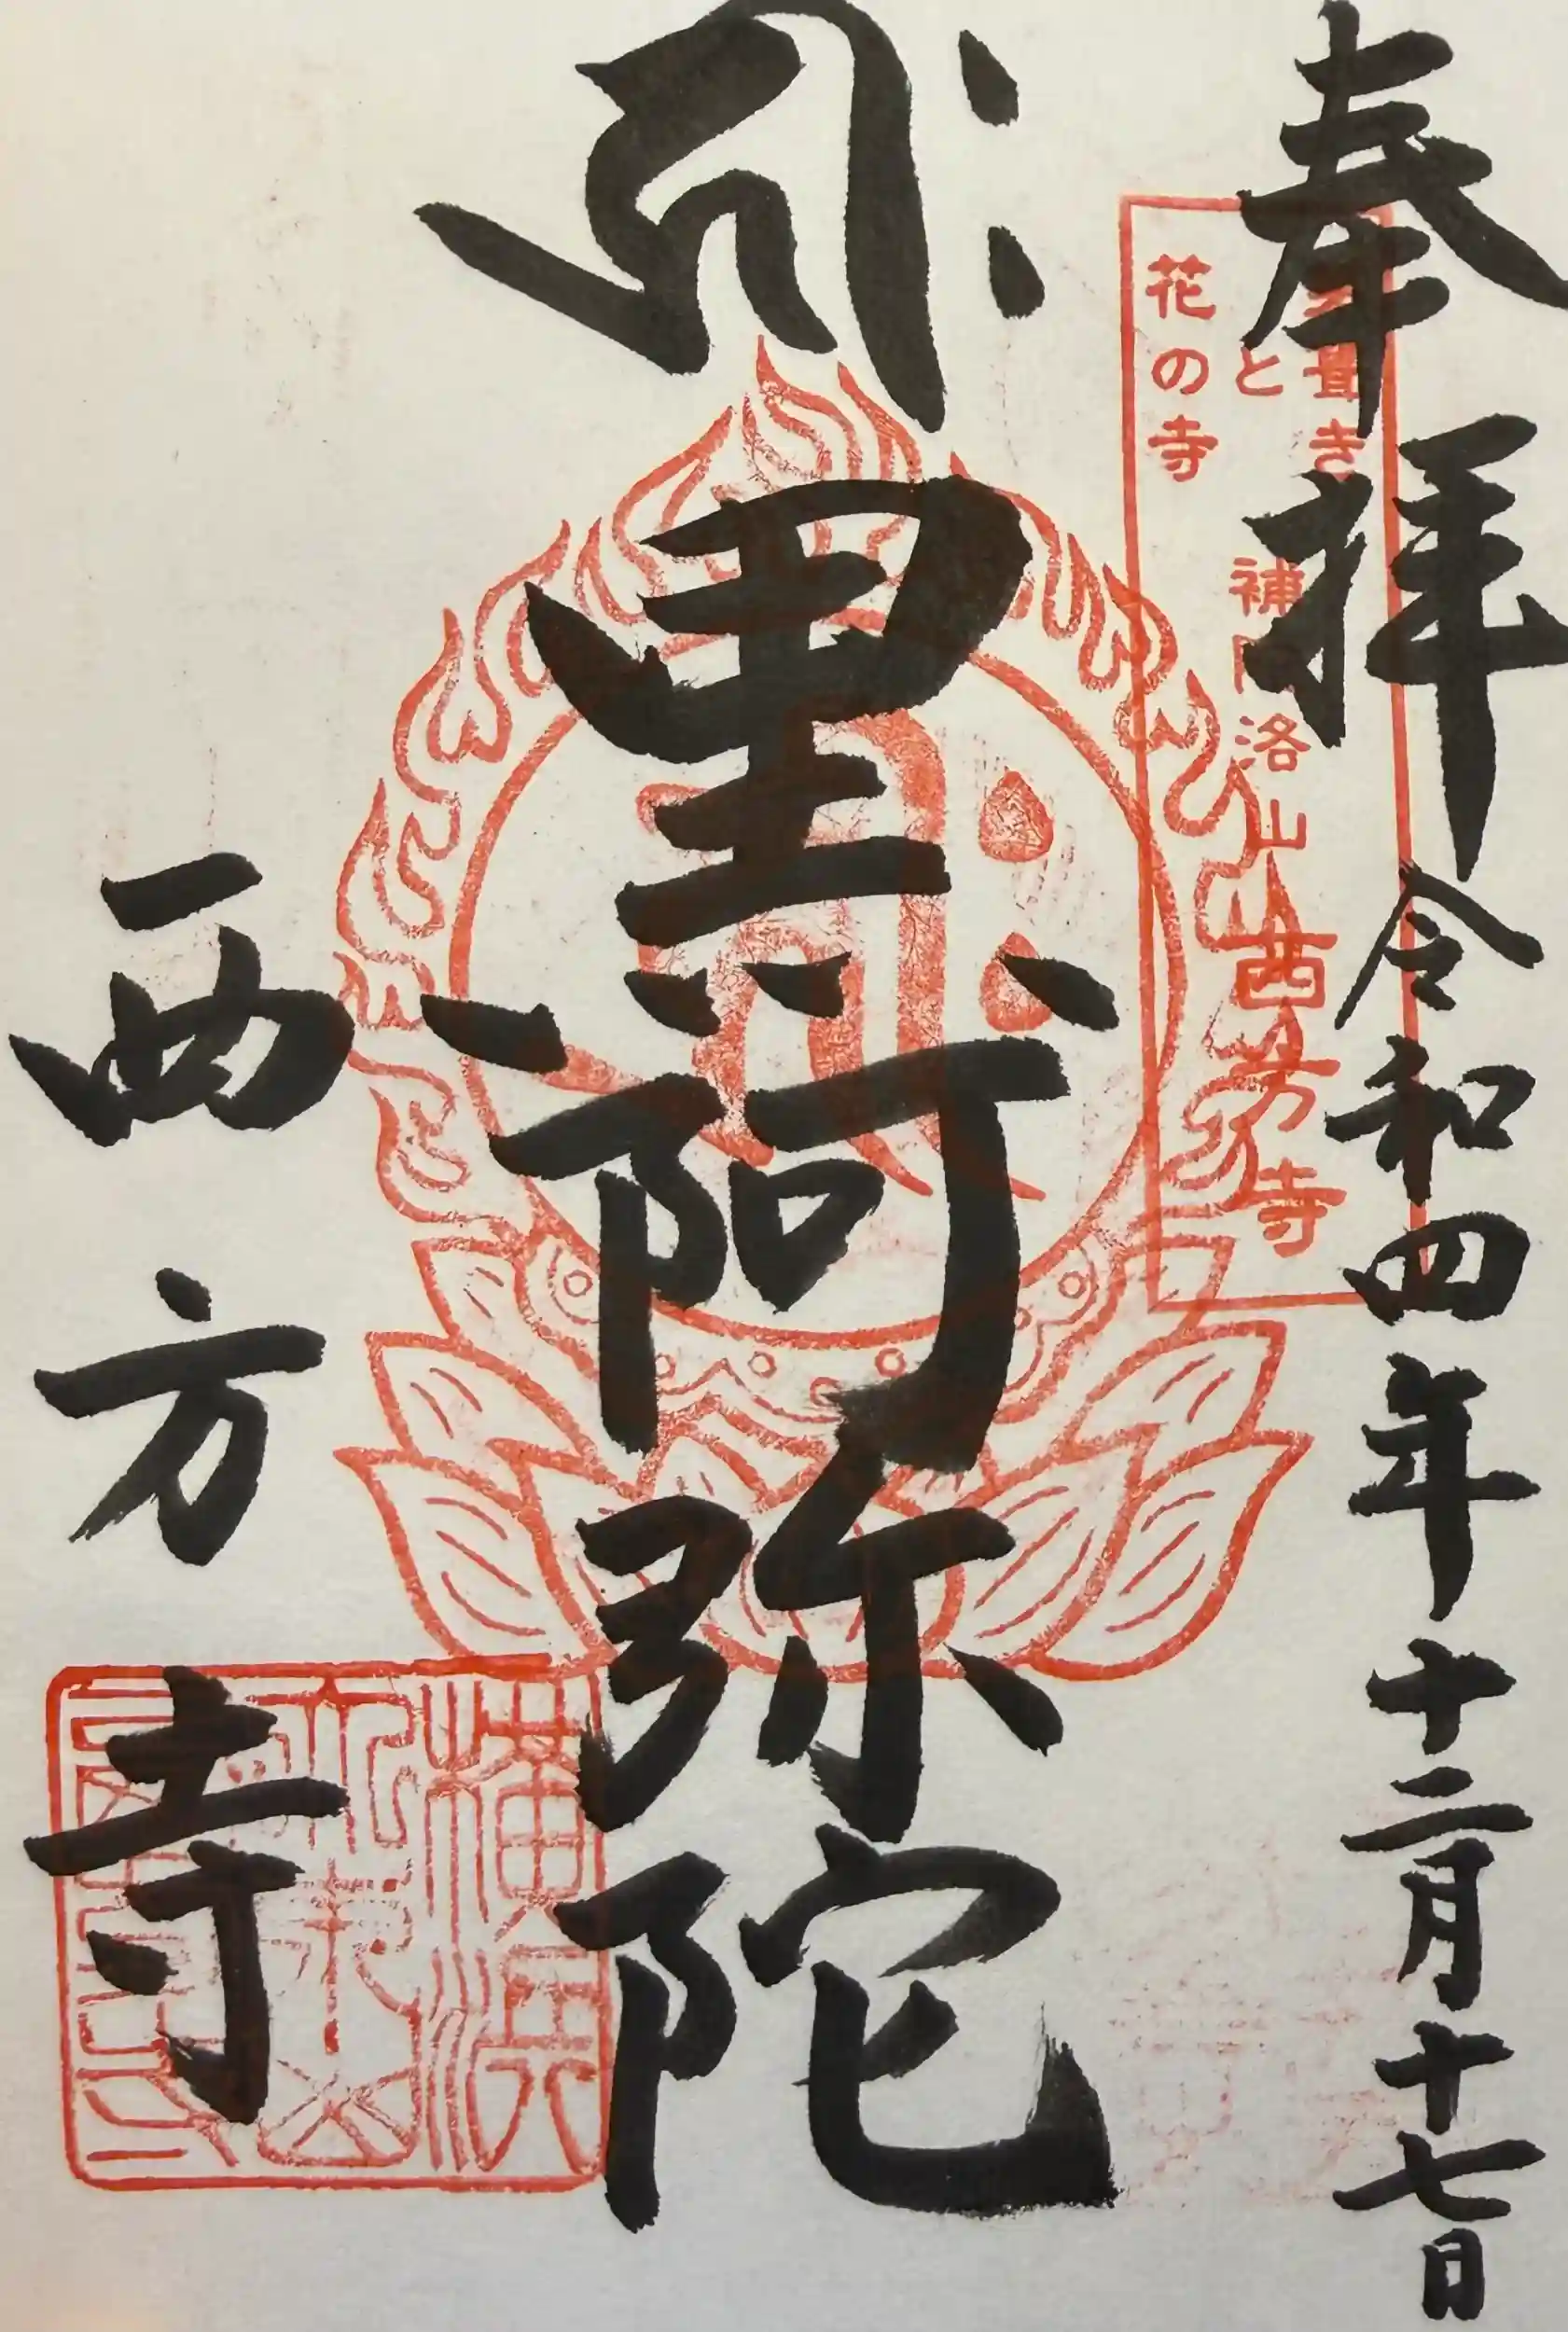 奉拝
令和四年十二月十七日
と
花の寺
洛山西方寺
黒阿弥陀
西方寺
横浜